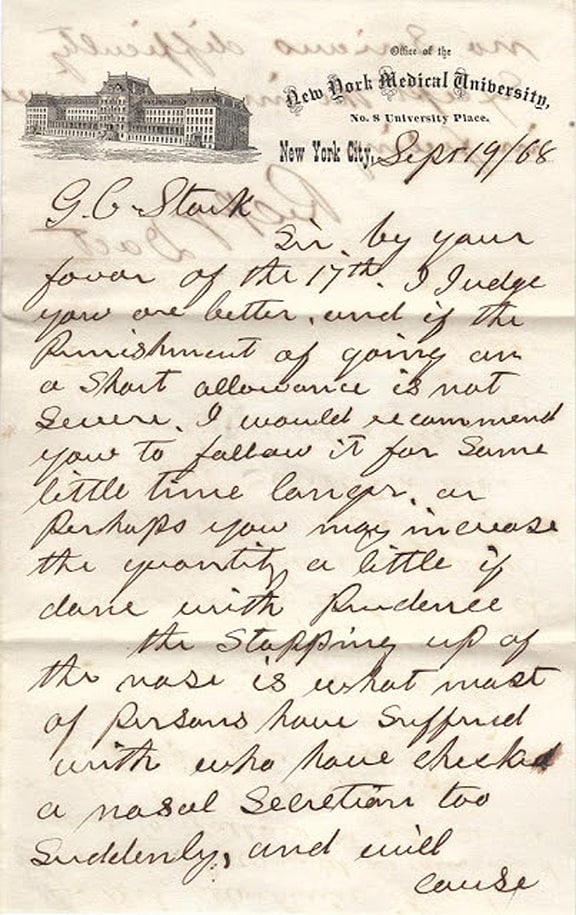 Office of the
New York Medical University,
No. 8 University Place.
New York City, Sept 19/68
G. C. Stark
Sir. by your
favor of the 17th. I Judge
you are better. and if the
Punishment of going on
a Short allowance is not
Severe. I would recommend
you to follow it for Some
little time longer. or
Perhaps you may increase
the quantity a little if
done with Prudence
the Stopping up of
the nose is what most
of Persons have Suffered
with who have checked
a nasal Secretion too
Suddenly, and will
cause